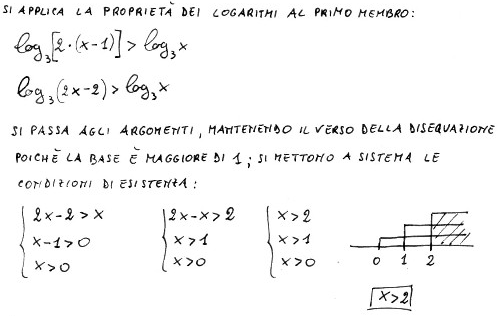 SI APPLICA LA PROPRIETÀ DEI LOGARITMI AL PRIMO MEMBRO:
log₃[2·(x-1)] > log₃x
log₃(2x-2) > log₃x
SI PASSA AGLI ARGOMENTI, MANTENENDO IL VERSO DELLA DISEQUAZIONE
POICHÈ LA BASE È MAGGIORE DI 1; SI METTONO A SISTEMA LE
CONDIZIONI DI ESISTENZA:
{ 2x-2>x { 2x-x>2 { x>2
x-1>0 x>1 x>1
x>0 x>0 x>0
0 1 2
x>2